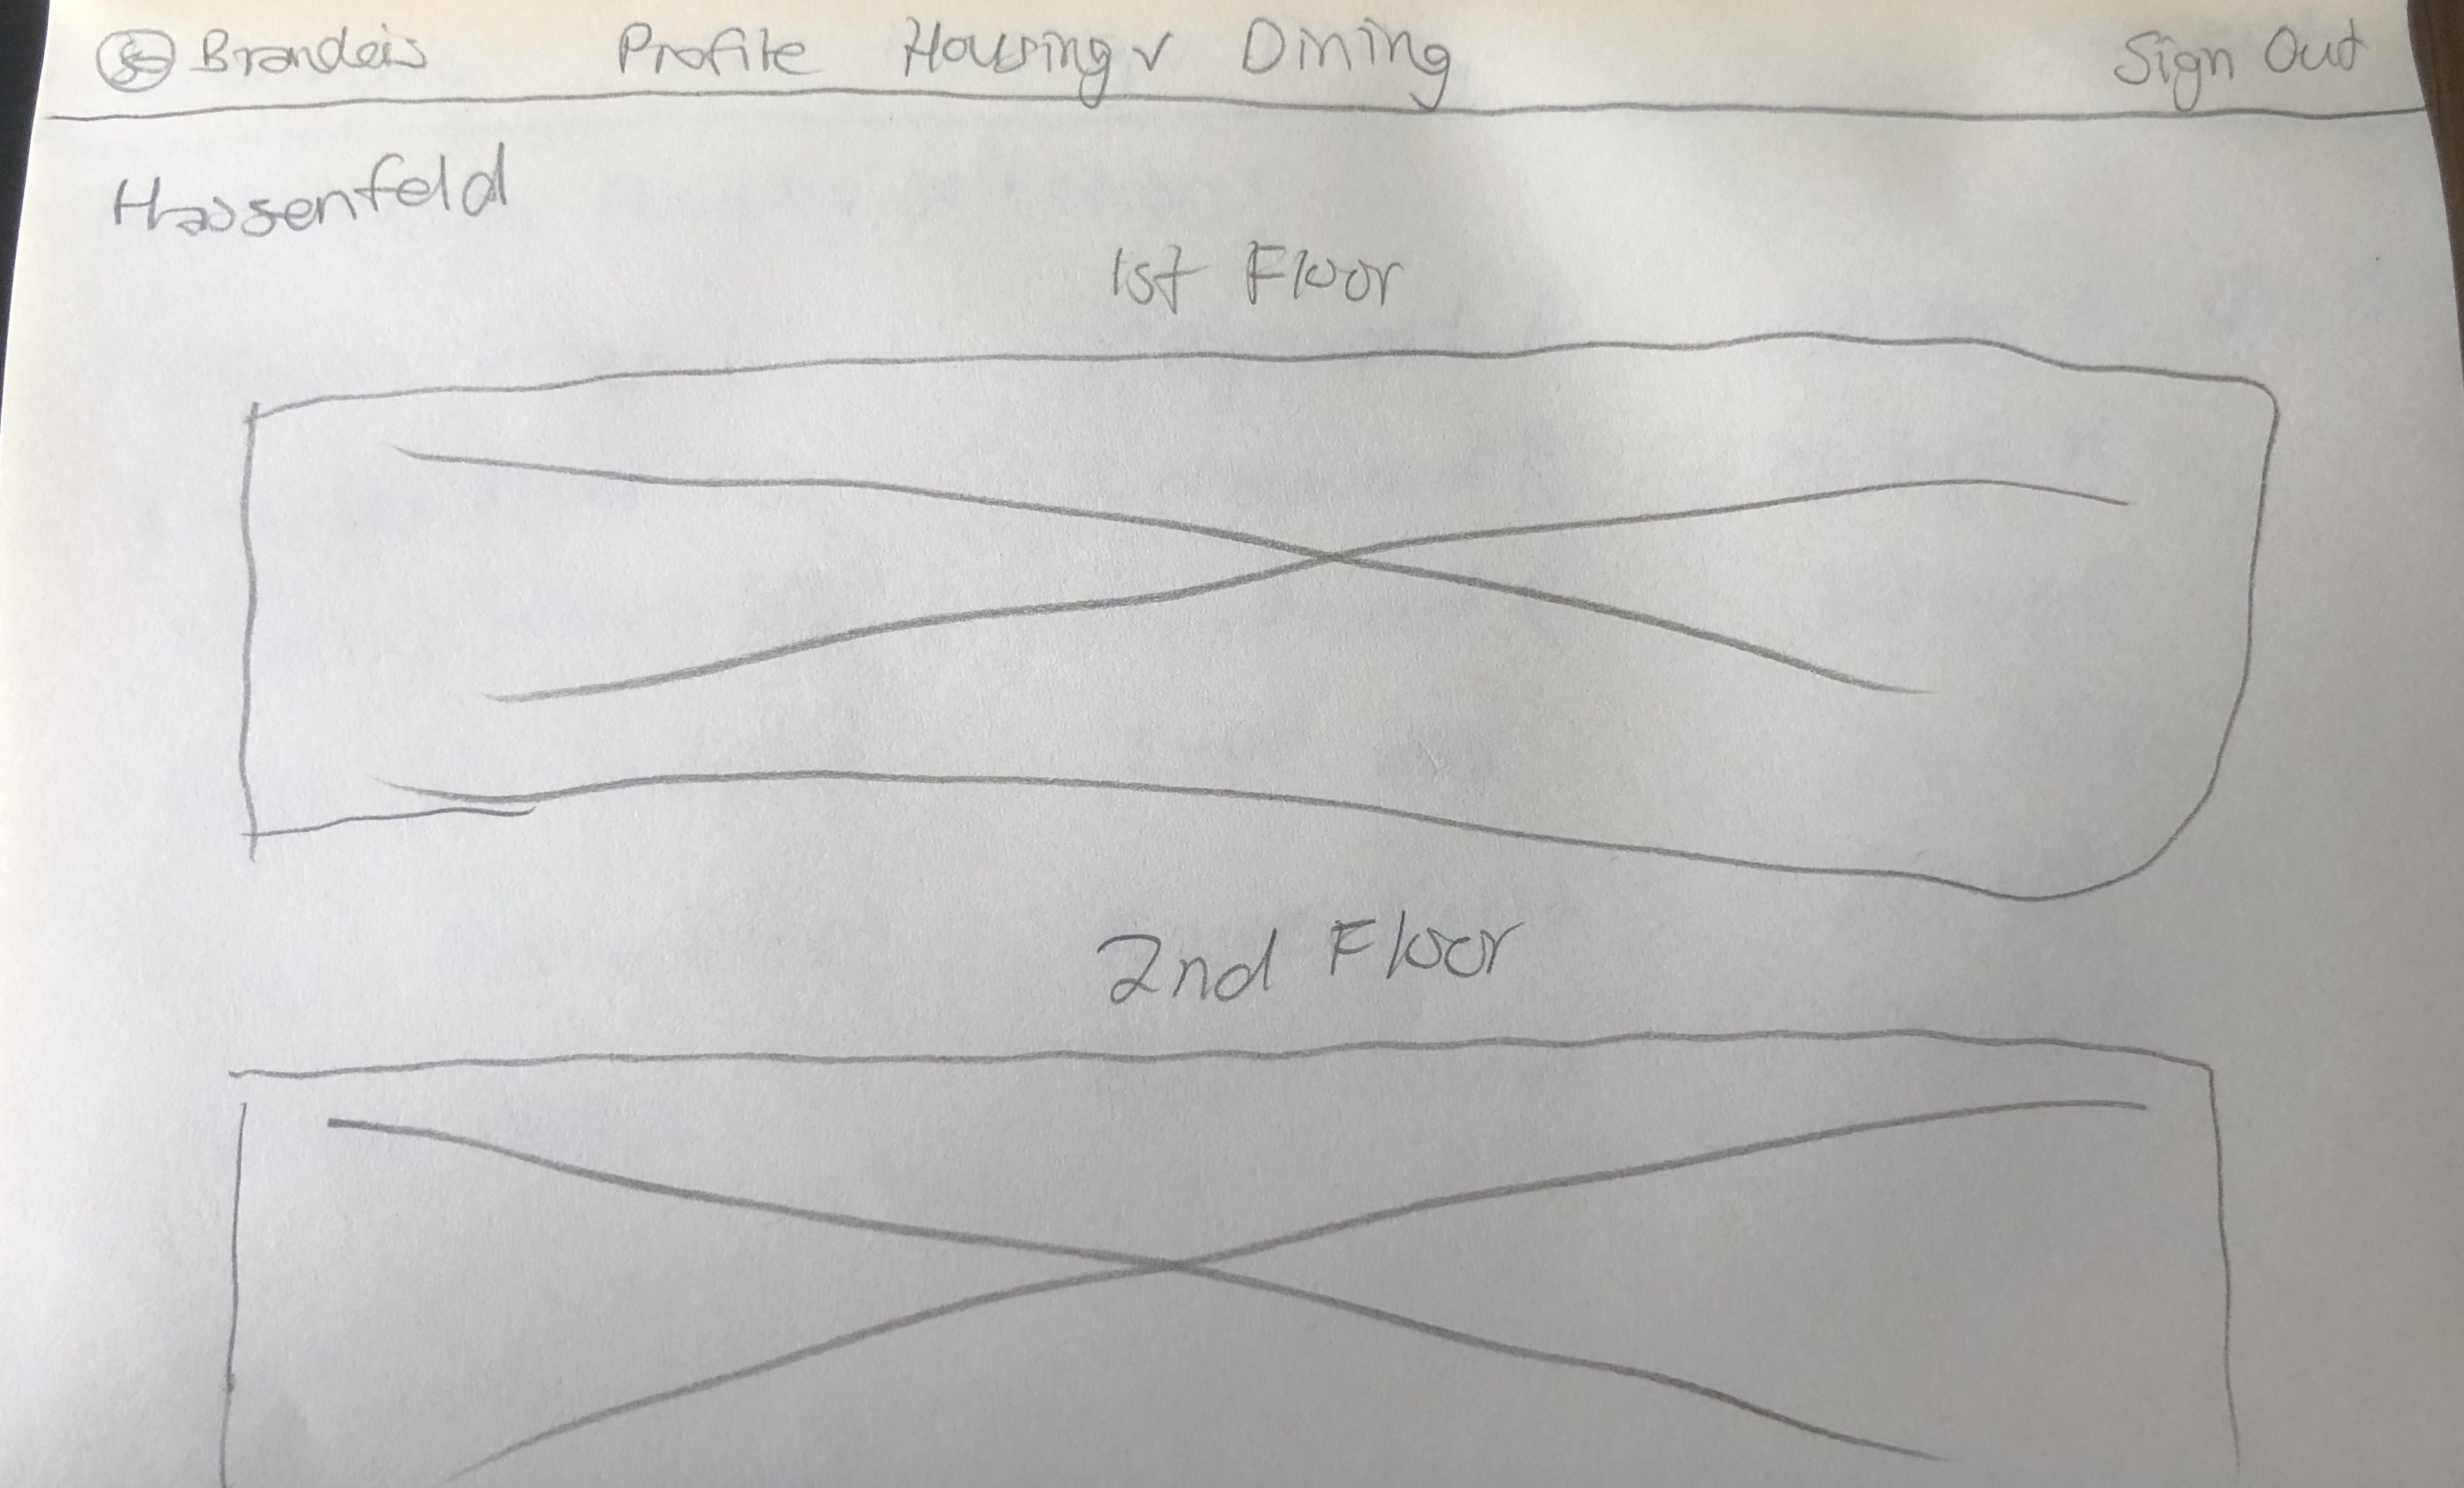 Brandeis Profile Housing v Dining Sign Out
Hassenfeld
1st Floor
2nd Floor